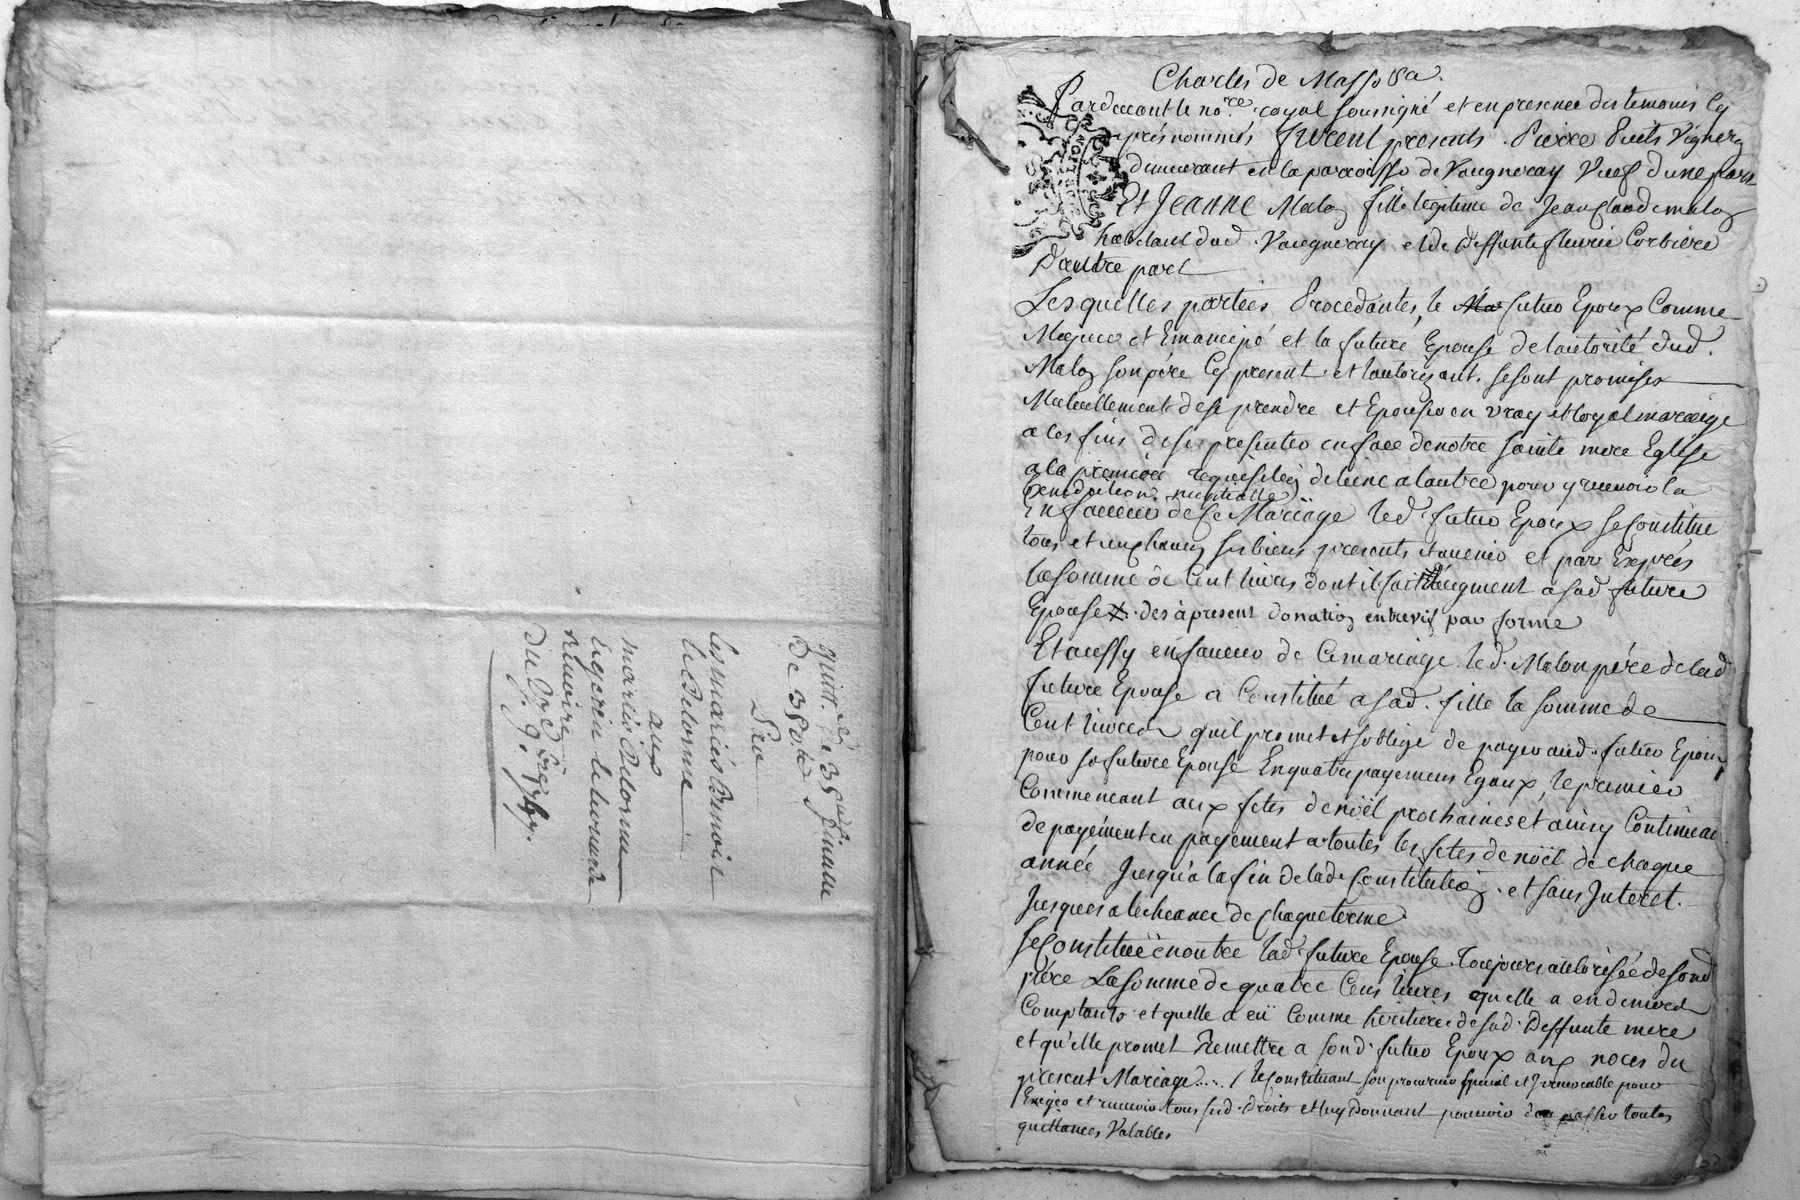 quitt. de 35 #
de 350 #
Par
les mariés
le Delorme
aux
mariés Delorme
du 9.
Charles de Masso
Pardevant le no.re royal soussigné et en presence des temoins Cy
aprés nommés furent presents. Pierre Puits Vigneron
demeurant en la parroisse de Vaugneray Veuf d'une part
Et Jeanne Malon fille legitime de Jean Claude malon
habitant dud. Vaugneray et de Deffunte fleurie Corbiere
D'autre part
Lesquelles parties Procedantes, le futur Epoux Comme
Majeur et Emancipé et la future Epouse de l'autorité dud.
Malon son pére Cy present et l'autorizant. se sont promises
Mutuellement de se prendre et Epouser en vray et loyal mariage
a les fins de se presenter en face de notre sainte mere Eglise
a la premiere requisition de l'une a l'autre pour y recevoir la
Benediction nuptialle
En faveur de Ce Mariage led. futur Epoux se Constitue
tous et un chacun ses biens presents et avenir et par Exprés
la somme de Cent livres dont il fait d'augment a sad. future
Epouse dès à present donation entrevifs par forme
Et aussy en faveur de Ce mariage led. Malon pére de lad
future Epouse a Constitué a sad. fille la somme de
Cent livres qu'il promet et s'oblige de payer aud. futur Epoux
pour sa future Epouse En quatre payemens Egaux, le premier
Commencant aux fetes de noël prochaines et ainsy Continuer
de payement en payement a toutes les fetes de noël de chaque
année Jusqu'a la fin de lad. Constitution. et sans Interet.
Jusques a l'echeance de Chaque terme
Se Constitue en outre lad. future Epouse. toujours autorisée de sond
pére La somme de quatre Cens livres quelle a en deniers
Comptants et quelle a eu Comme heritiere de sad. Deffunte mere
et qu'elle promet Remettre a sond. futur Epoux aux noces du
present Mariage..... / le Constituant son procureur special et Irrevocable pour
Exiger et recevoir tous sesd. droits et luy Donnant pouvoir d'en passer toutes
quittances Valables